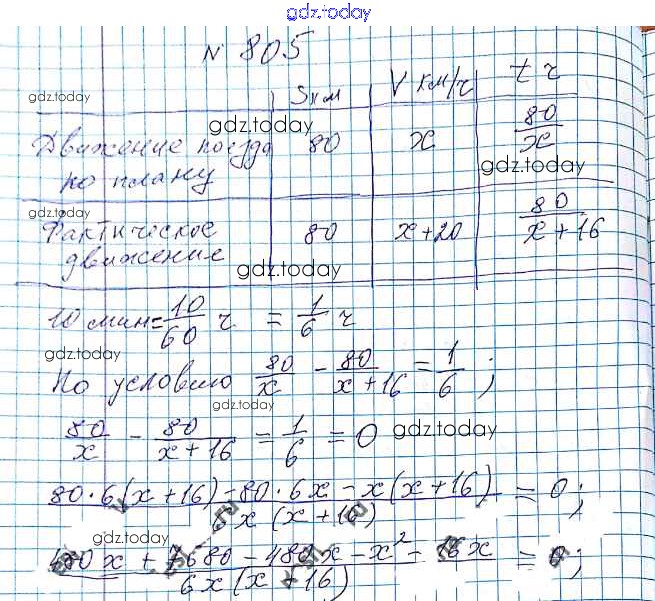 gdz.today
N 805
gdz.today
Sкм V км/ч t ч
gdz.today
Движение поезда по плану 80 x 80/x
gdz.today
gdz.today
Фактическое движение 80 x+20 80/(x+16)
gdz.today
10 мин = 10/60 ч = 1/6 ч
gdz.today
По условию 80/x - 80/(x+16) = 1/6 ;
gdz.today
80/x - 80/(x+16) = 1/6 = 0
gdz.today
(80·6(x+16) - 80·6x - x(x+16))/(6x(x+16)) = 0;
gdz.today
(480x + 7680 - 480x - x² - 16x)/(6x(x+16)) = 0;